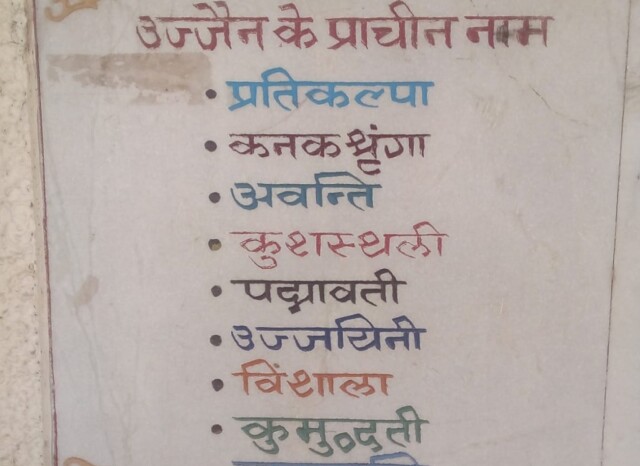 उज्जैन के प्राचीन नाम
• प्रतिकल्पा
• कनकश्रृंगा
• अवन्ति
• कुशस्थली
• पद्मावती
• उज्जयिनी
• विशाला
• कुमुद्वती